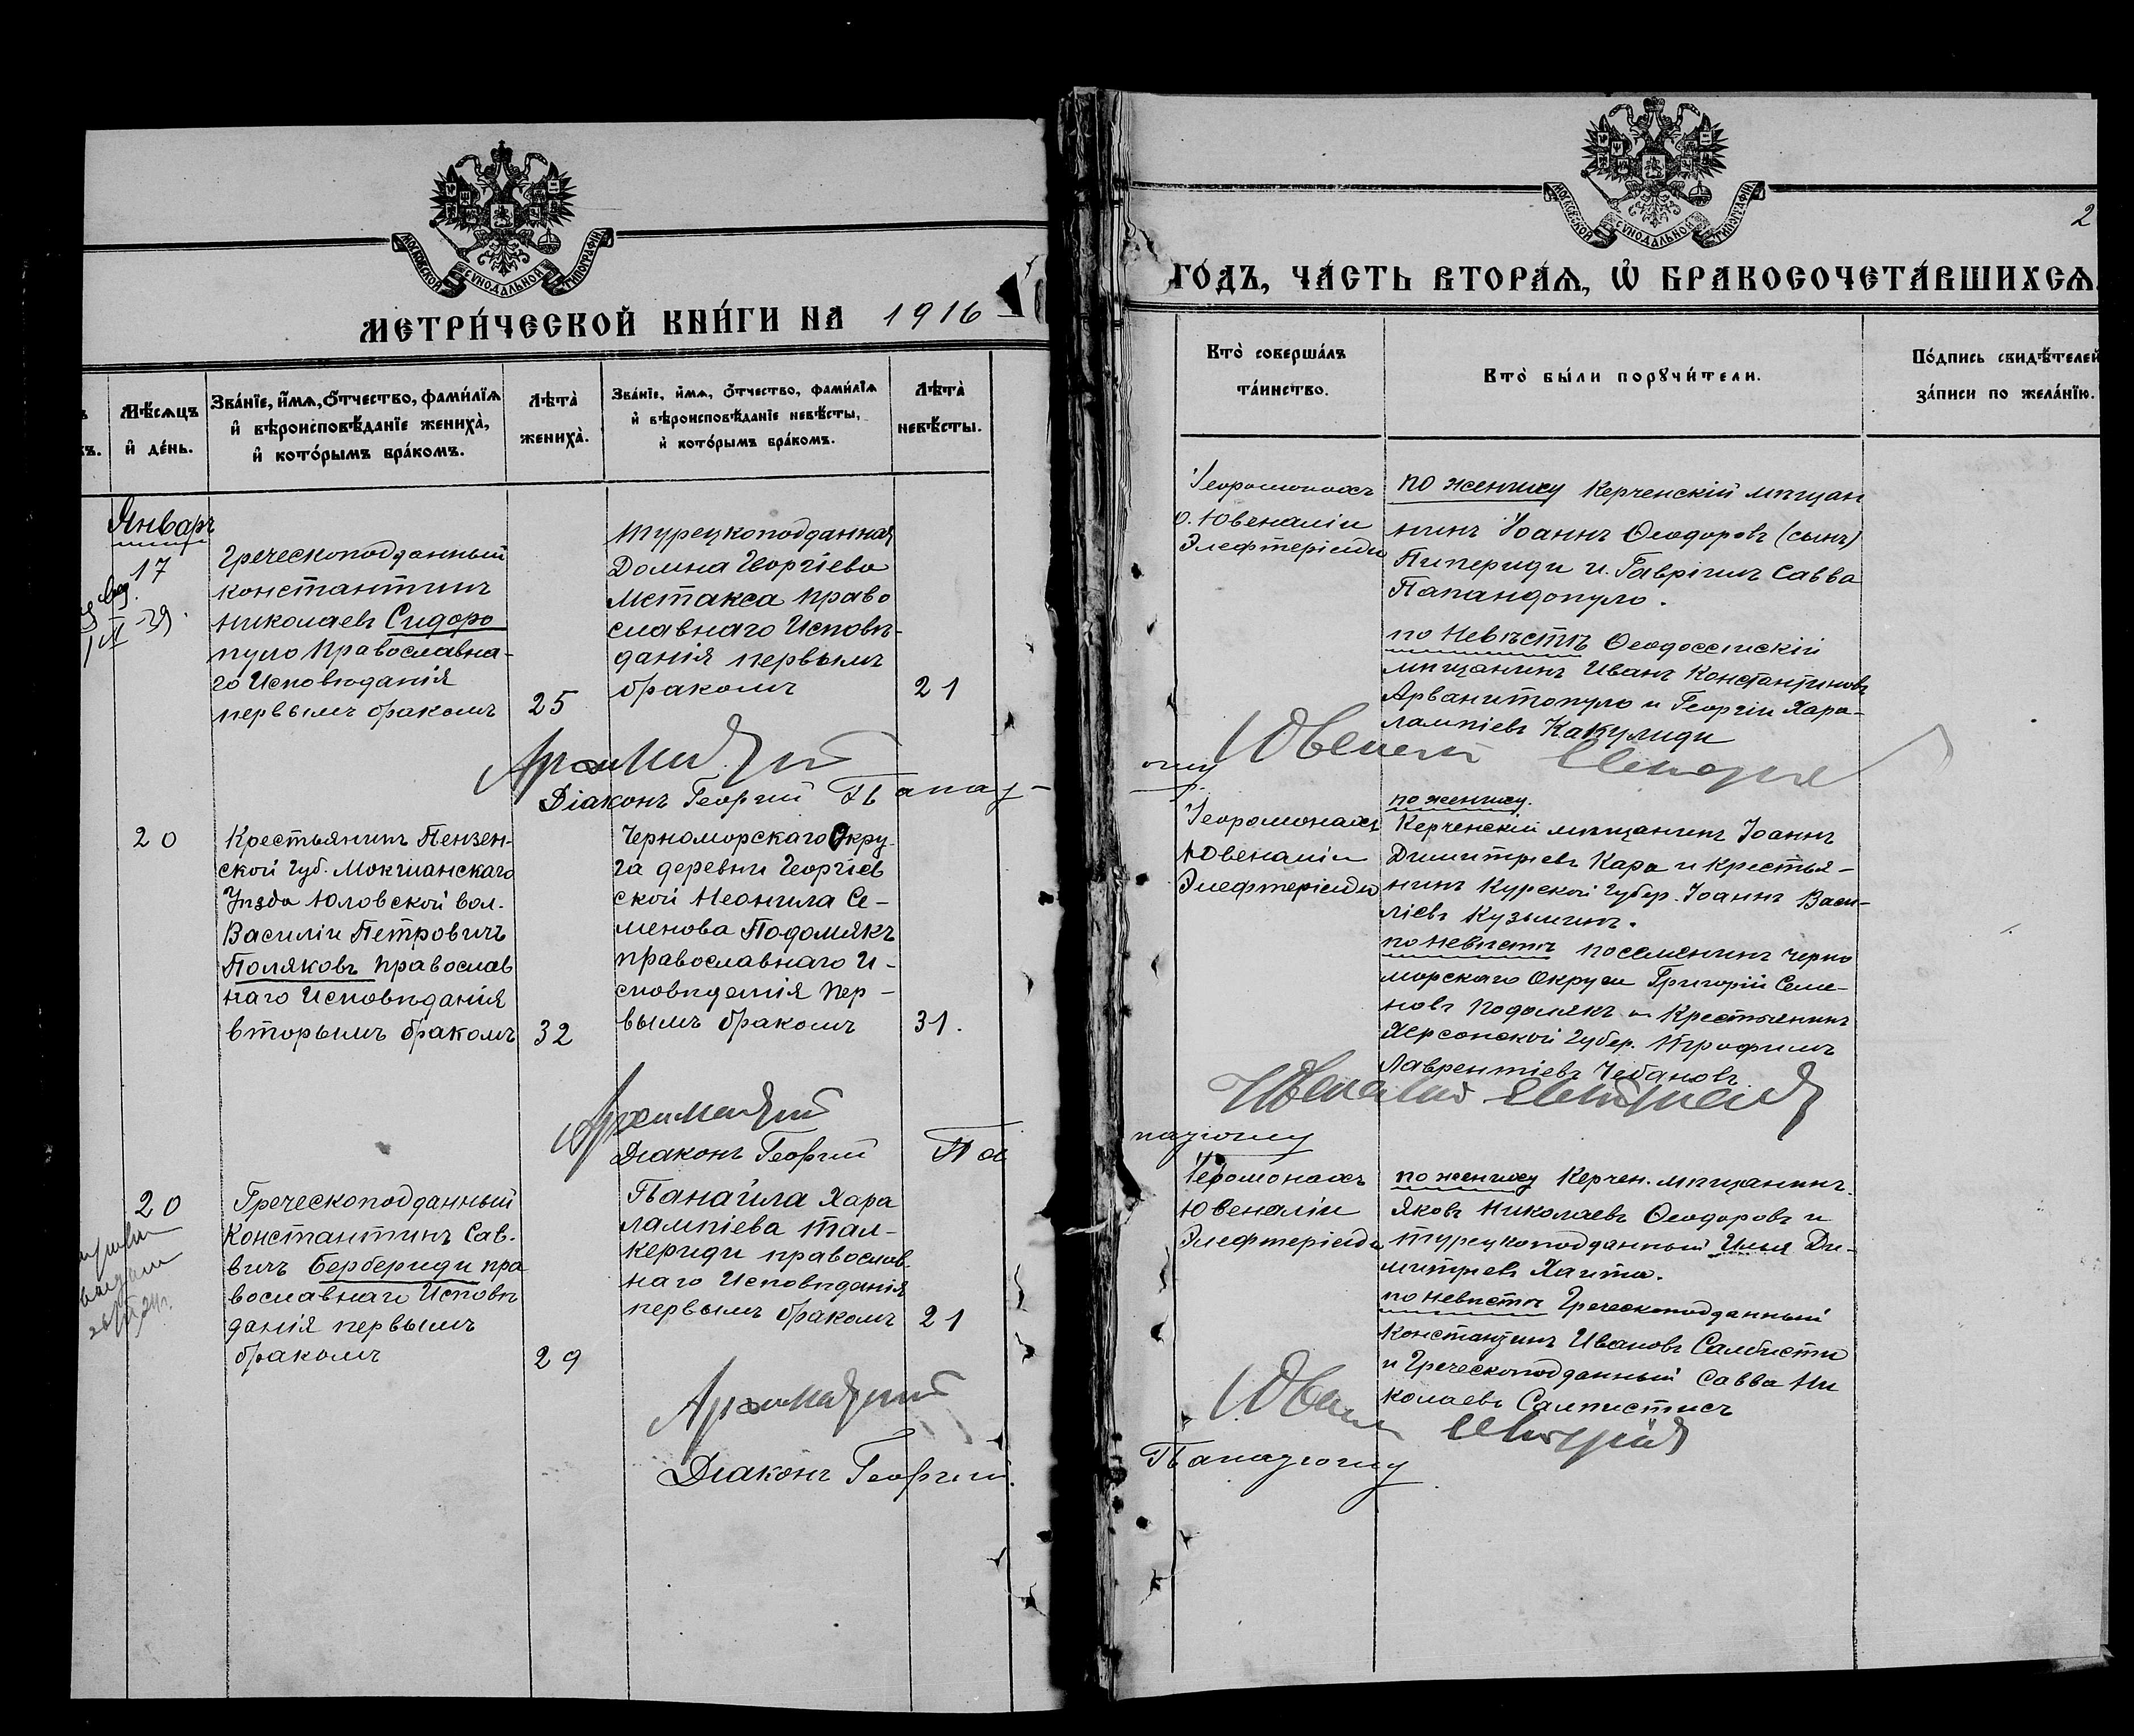 МОСКОВСКОЙ СУНОДАЛЬНОЙ ТИПОГРАФІИ
МЕТРИ́ЧЕСКОЙ КНИ́ГИ НА 1916
Мѣсѧцъ
и҆ де́нь.
Зва́нїе, и҆́мѧ, ѻ҆́тчество, фами́лїѧ
и҆ вѣроисповѣ́данїе жениха̀,
и҆ кото́рымъ бра́комъ.
Лѣта̀
жениха̀.
Зва́нїе, и҆́мѧ, ѻ҆́тчество, фами́лїѧ
и҆ вѣроисповѣ́данїе невѣ́сты,
и҆ кото́рымъ бра́комъ.
Лѣта̀
невѣ́сты.
Январь
17
Греческоподданный
Константинъ
Николаевъ Сидоро
пуло Православна-
го Исповѣданія
первымъ бракомъ
25
Турецкоподданная
Домна Георгіева
Метакса право
славнаго Исповѣ-
данія первымъ
бракомъ
21
Діаконъ Георгий
20
Крестьянинъ Пензен-
ской губ. Мокшанскаго
Уѣзда Юловской вол.
Василіи Петровичъ
Поляковъ Православ
наго Исповѣданія
вторымъ бракомъ
32
Черноморскаго Окру-
га деревни Георгіев
ской Неонила Се-
менова Подомякъ
православнаго И-
сповѣданія пер-
вымъ бракомъ
31.
Діаконъ Георгий Па
20
Греческоподданный
Константинъ Сав-
вичъ Бербериди пра
вославнаго Исповѣ
данія первымъ
бракомъ
29
Панаила Хара
лампіева Тал-
кериди православ-
наго Исповѣданія
первымъ бракомъ
21
Діаконъ Георгии
МОСКОВСКОЙ СУНОДАЛЬНОЙ ТИПОГРАФІИ
2
ГО́ДЪ, ЧА́СТЬ ВТОРА́Ѧ, Ѡ҆ БРАКОСОЧЕТА́ВШИХСѦ.
Кто̀ соверша́лъ
та́инство.
Кто̀ бы́ли порꙋчи́тели.
По́дпись свидѣ́телей
за́писи по жела́нїю.
Іеромонахъ
о. Ювеналіи
Элефтеріади
по жениху Керченскій мѣщан
нинъ Іоаннъ Ѳеодоровъ (сынъ)
Пипериди и Гавріилъ Савва
Папандопуло.
по Невѣстѣ Ѳеодоссійскій
мѣщанинъ Иванъ Константиновъ
Арванитопуло и Георгіи Хара-
лампіевъ Какулиди
Іеромонахъ
Ювеналіи
Элефтеріади
по жениху.
Керченскій мѣщанинъ Іоаннъ
Димитріевъ Кара и крестья-
нинъ Курской губер. Іоаннъ Васи-
ліевъ Кузьминъ.
по невѣстѣ поселенинъ Черно
морскаго Округа Григорій Семе-
новъ Подомякъ и Крестьянинъ
Херсонской губер. Трофимъ
Лаврентіевъ Чебановъ
Іеромонахъ
Ювеналіи
Элефтеріади
по жениху Керчен. мѣщанинъ
Яковъ Николаевъ Ѳеодоровъ и
турецкоподданный Илья Ди-
митріевъ Хаита.
по невѣстѣ Греческоподданный
Константинъ Ивановъ Салбисти
и Греческоподданный Савва Ни
колаевъ Салпистисъ